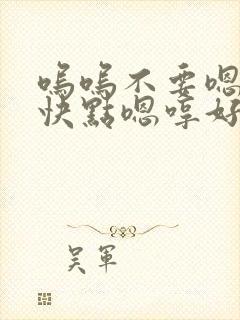 嗚嗚不要嗯
快點嗯哼好
吳軍